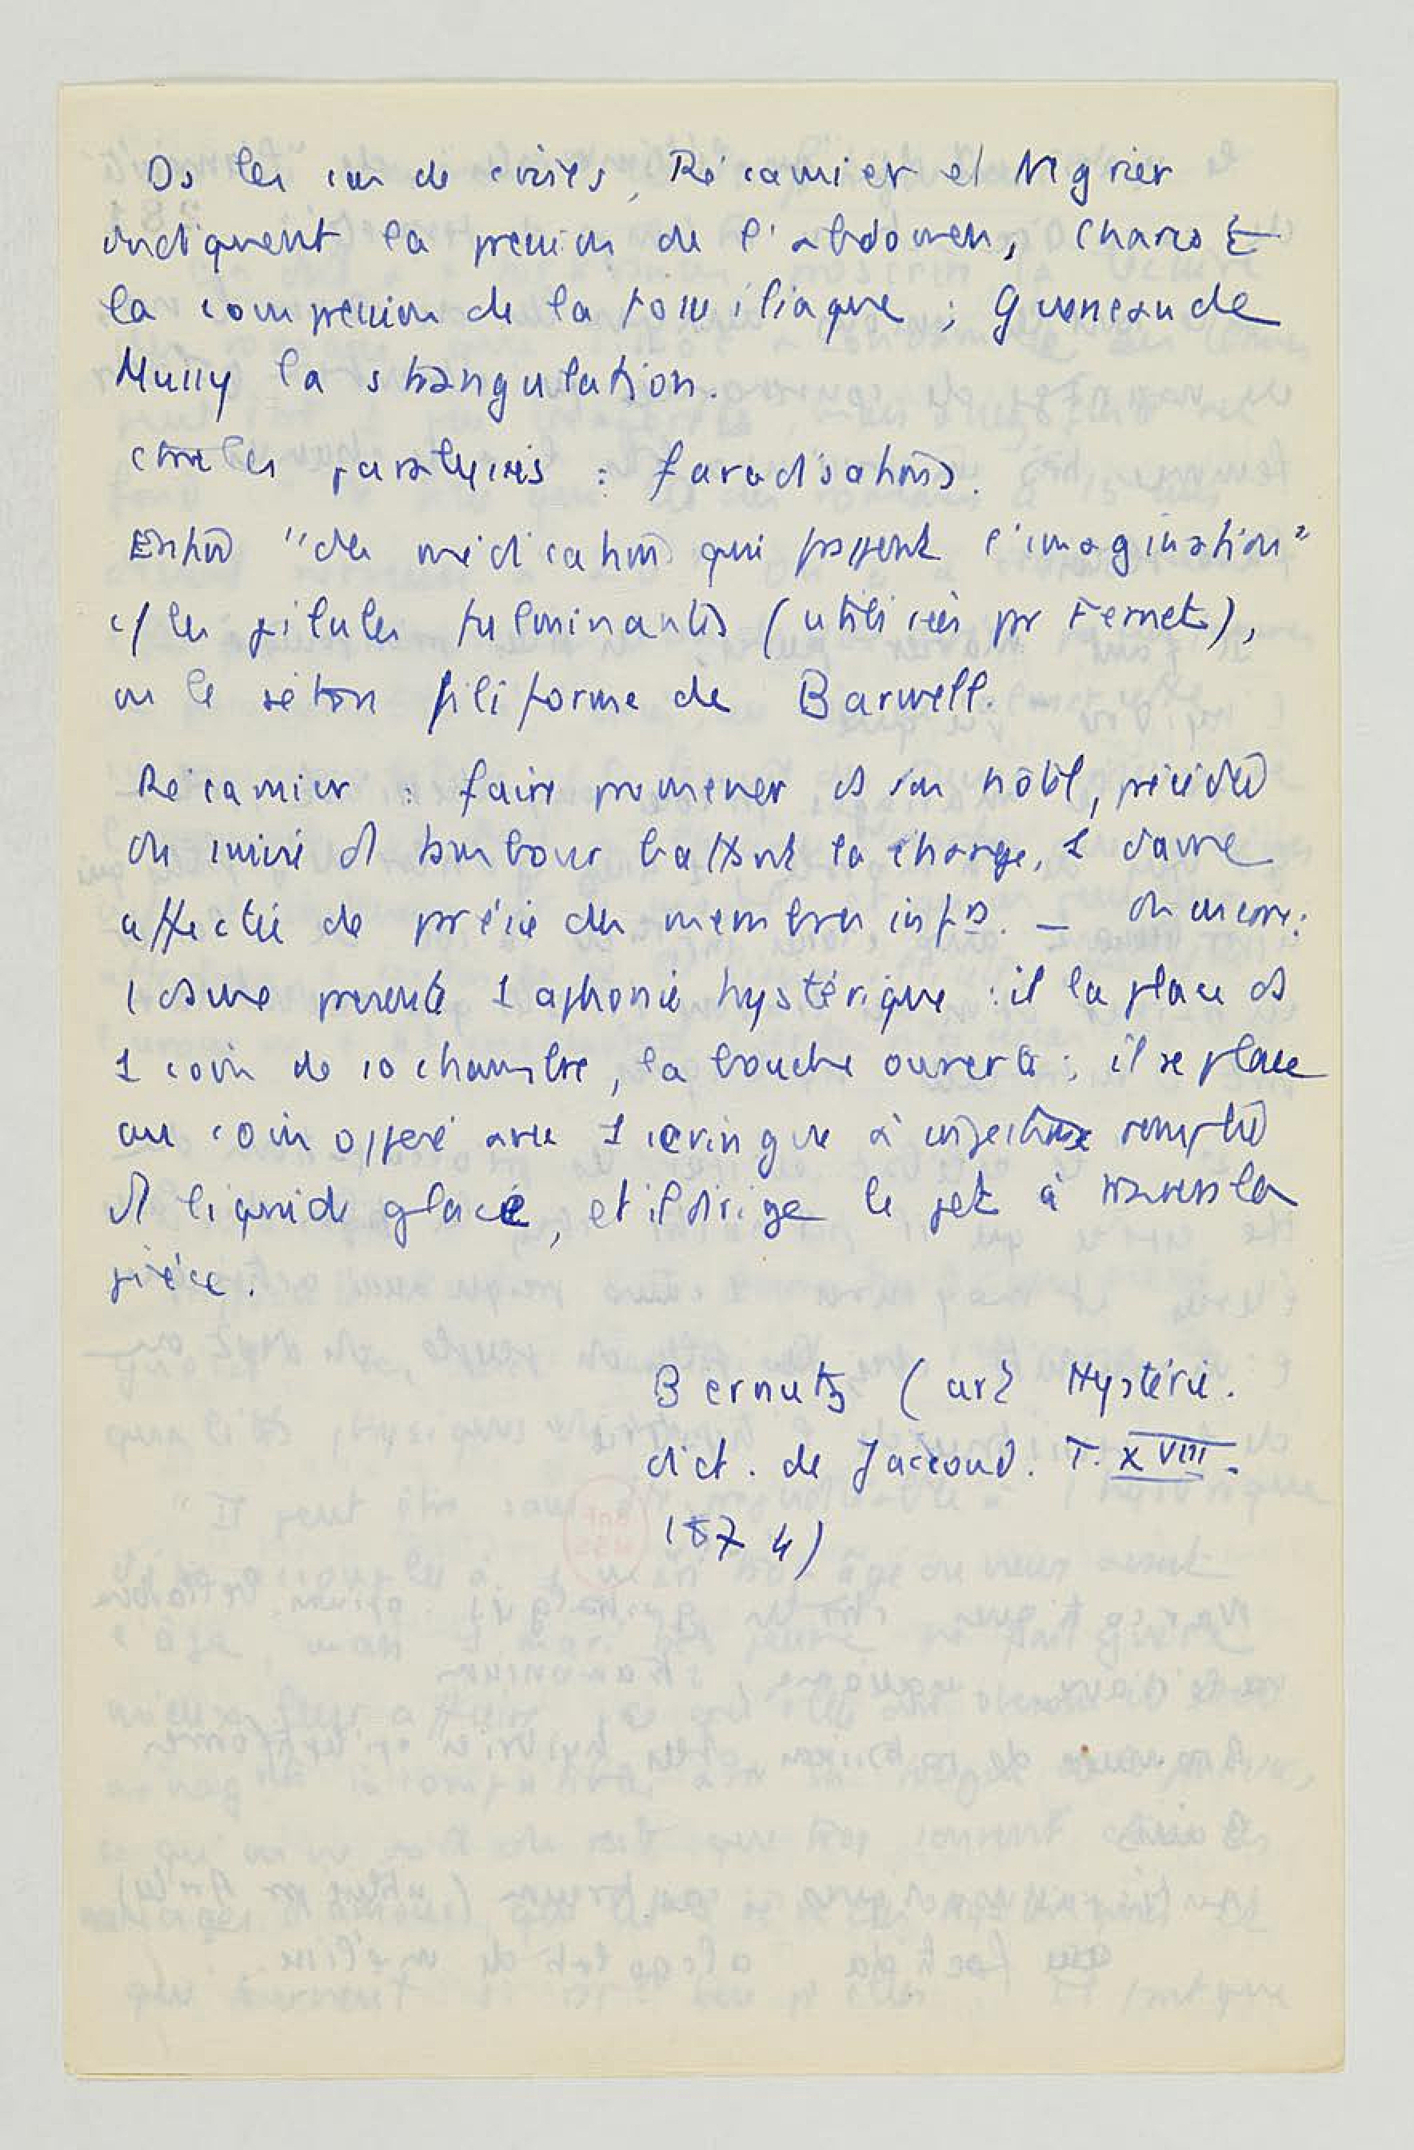 Ds les cas de crises, Récamier et Négrier
indiquent la pression de l'abdomen, Charcot
la compression de la fosse iliaque ; Gueneau de
Mussy la strangulation.
Contre les paralysies : faradisations.
Enfin "des médications qui frappent l'imagination"
c/ les pilules fulminantes (utilisées pr Fernet),
ou le séton filiforme de Barwell.
Récamier : faire promener ds son hôtel, précédée
ou suivie d tambour battant la charge, 1 dame
affectée de parésie des membres infrs. — Ou encore :
1 dame présente 1 aphonie hystérique : il la place ds
1 coin de sa chambre, la bouche ouverte ; il se place
au coin opposé avec 1 seringue à injection remplie
d liquide glacé, et il dirige le jet à travers la
pièce.
Bernutz (art Hystérie.
dict. de Jaccoud. T. XVIII.
1874)